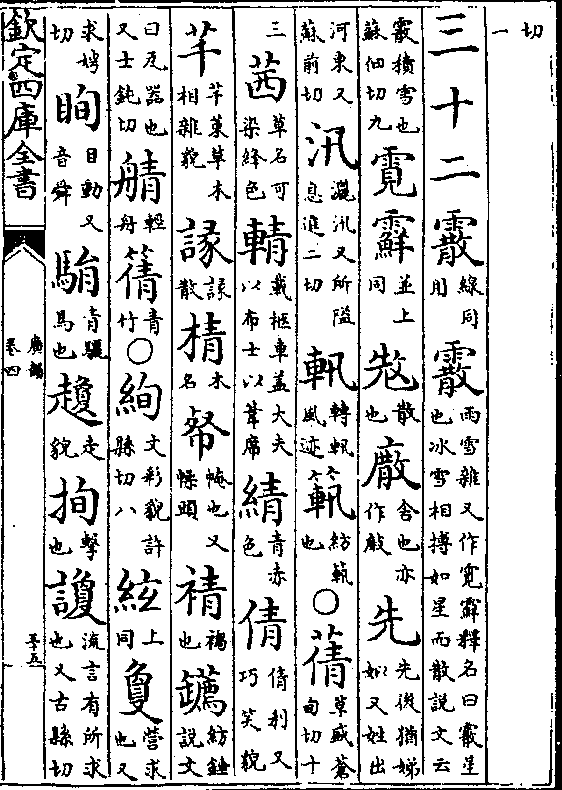 切一
三十二霰線同用霰雨雪雜又作霓霹釋名曰霰星也冰雪相搏如星而散說文云
霰積雪也蘇佃切九霓䨷並上同㪇散也廠舍也亦作厰先先後猶娣姒又姓出
河東又蘇前切汛灑汛又所隘息進二切軐轉軐風迹紡軐也○蒨草盛蒼甸切十
三茜草名可染絳色輤載柩車蓋大夫以布士以葦席綪青赤色倩倩利又巧笑貌
芊芊䒠草木相雜貌諑諑散棈木名帣㡋也又幧頭䊵褐也鑴紡錘說文
曰瓦器也又士鈍切䑶輕舟篟青竹○絢文彩貌許縣切八絃上同敻營求也又
求娉切眴目動又音舜駽青驪馬也趬走貌拘擊也讂流言有所求也又古縣切
欽定四庫全書
廣韻
卷四